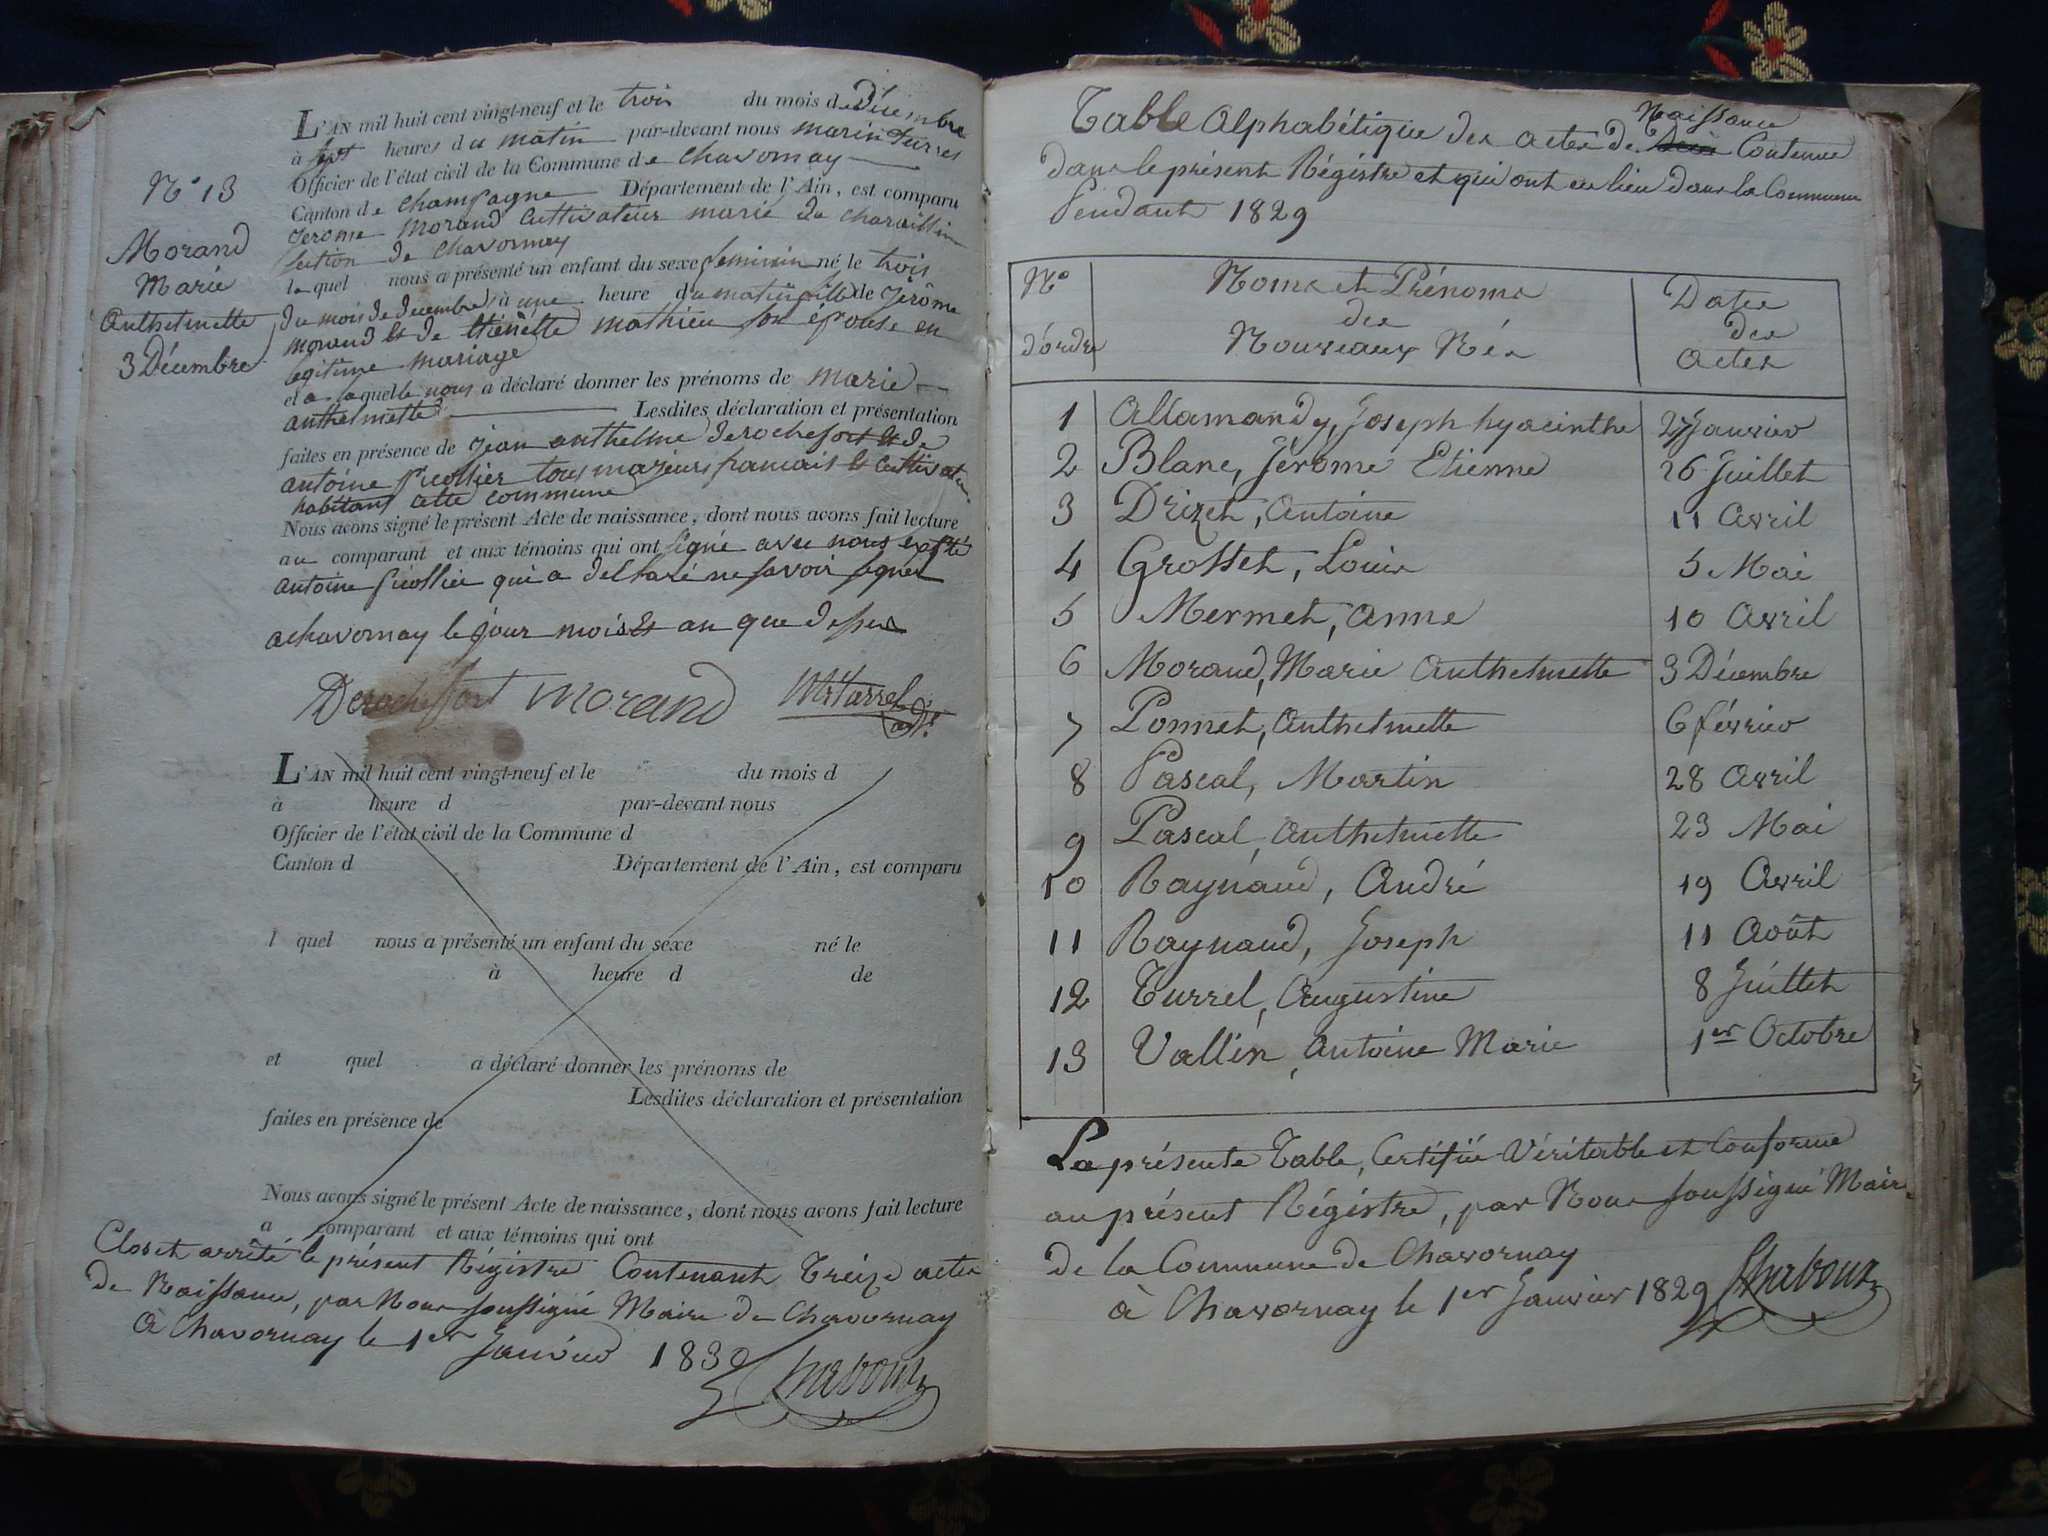 L'AN mil huit cent vingt-neuf et le trois du mois de Décembre
à sept heures du matin par-devant nous marin turrel
Officier de l'état civil de la Commune de Chavornay
Canton de Champagne Département de l'Ain, est comparu
Jerome Morand Cultivateur marié de
section de Chavornay
lequel nous a présenté un enfant du sexe feminin né le trois
du mois de decembre à une heure du matin fille de Jerôme
morand et de mathieu son épouse en
légitime mariage
et a laquelle nous a déclaré donner les prénoms de marie
anthelmette Lesdites déclaration et présentation
faites en présence de jean anthelme derochefort et de
antoine tous majeurs francais et
habitans cette commune
Nous avons signé le présent Acte de naissance, dont nous avons fait lecture
au comparant et aux témoins qui ont signé avec nous
antoine qui a déclaré ne savoir signer
a chavornay le jour mois et an que dessus
N° 13
Morand
Marie
Anthelmette
3 Décembre
Derochefort morand
L'AN mil huit cent vingt-neuf et le du mois d
à heure d par-devant nous
Officier de l'état civil de la Commune d
Canton d Département de l'Ain, est comparu
l quel nous a présenté un enfant du sexe né le
à heure d de
et quel a déclaré donner les prénoms de
Lesdites déclaration et présentation
faites en présence de
Nous avons signé le présent Acte de naissance, dont nous avons fait lecture
a comparant et aux témoins qui ont
Clos et arrêté le présent Régistre Contenant Treize actes
de Naissance, par Nous soussigné Maire de Chavornay
à Chavornay le 1er Janvier 1830
Table Alphabétique des actes de Naissance Contenue
dans le présent Régistre et qui ont eu lieu dans la Commune
Pendant 1829
N° Noms et Prénoms Dates
des des
d'ordre Nouveaux Nés Actes
1 Allamandy, Joseph hyacinthe 27 Janvier
2 Blanc, Jérome Etienne 26 Juillet
3 Drizet, Antoine 11 Avril
4 Grosset, Louis 5 Mai
5 Mermet, Anne 10 Avril
6 Morand, Marie Anthelmette 3 Décembre
7 Ponnet, Anthelmette 6 février
8 Pascal, Martin 28 Avril
9 Pascal, Anthelmette 23 Mai
10 Raynaud, André 19 Avril
11 Raynaud, Joseph 11 Août
12 Turrel, Augustine 8 Juillet
13 Vallin, Antoine Marie 1er Octobre
La présente Table, Certifiée Véritable et Conforme
au présent Régistre, par Nous soussigné Maire
de la Commune de Chavornay
à Chavornay le 1er Janvier 1829